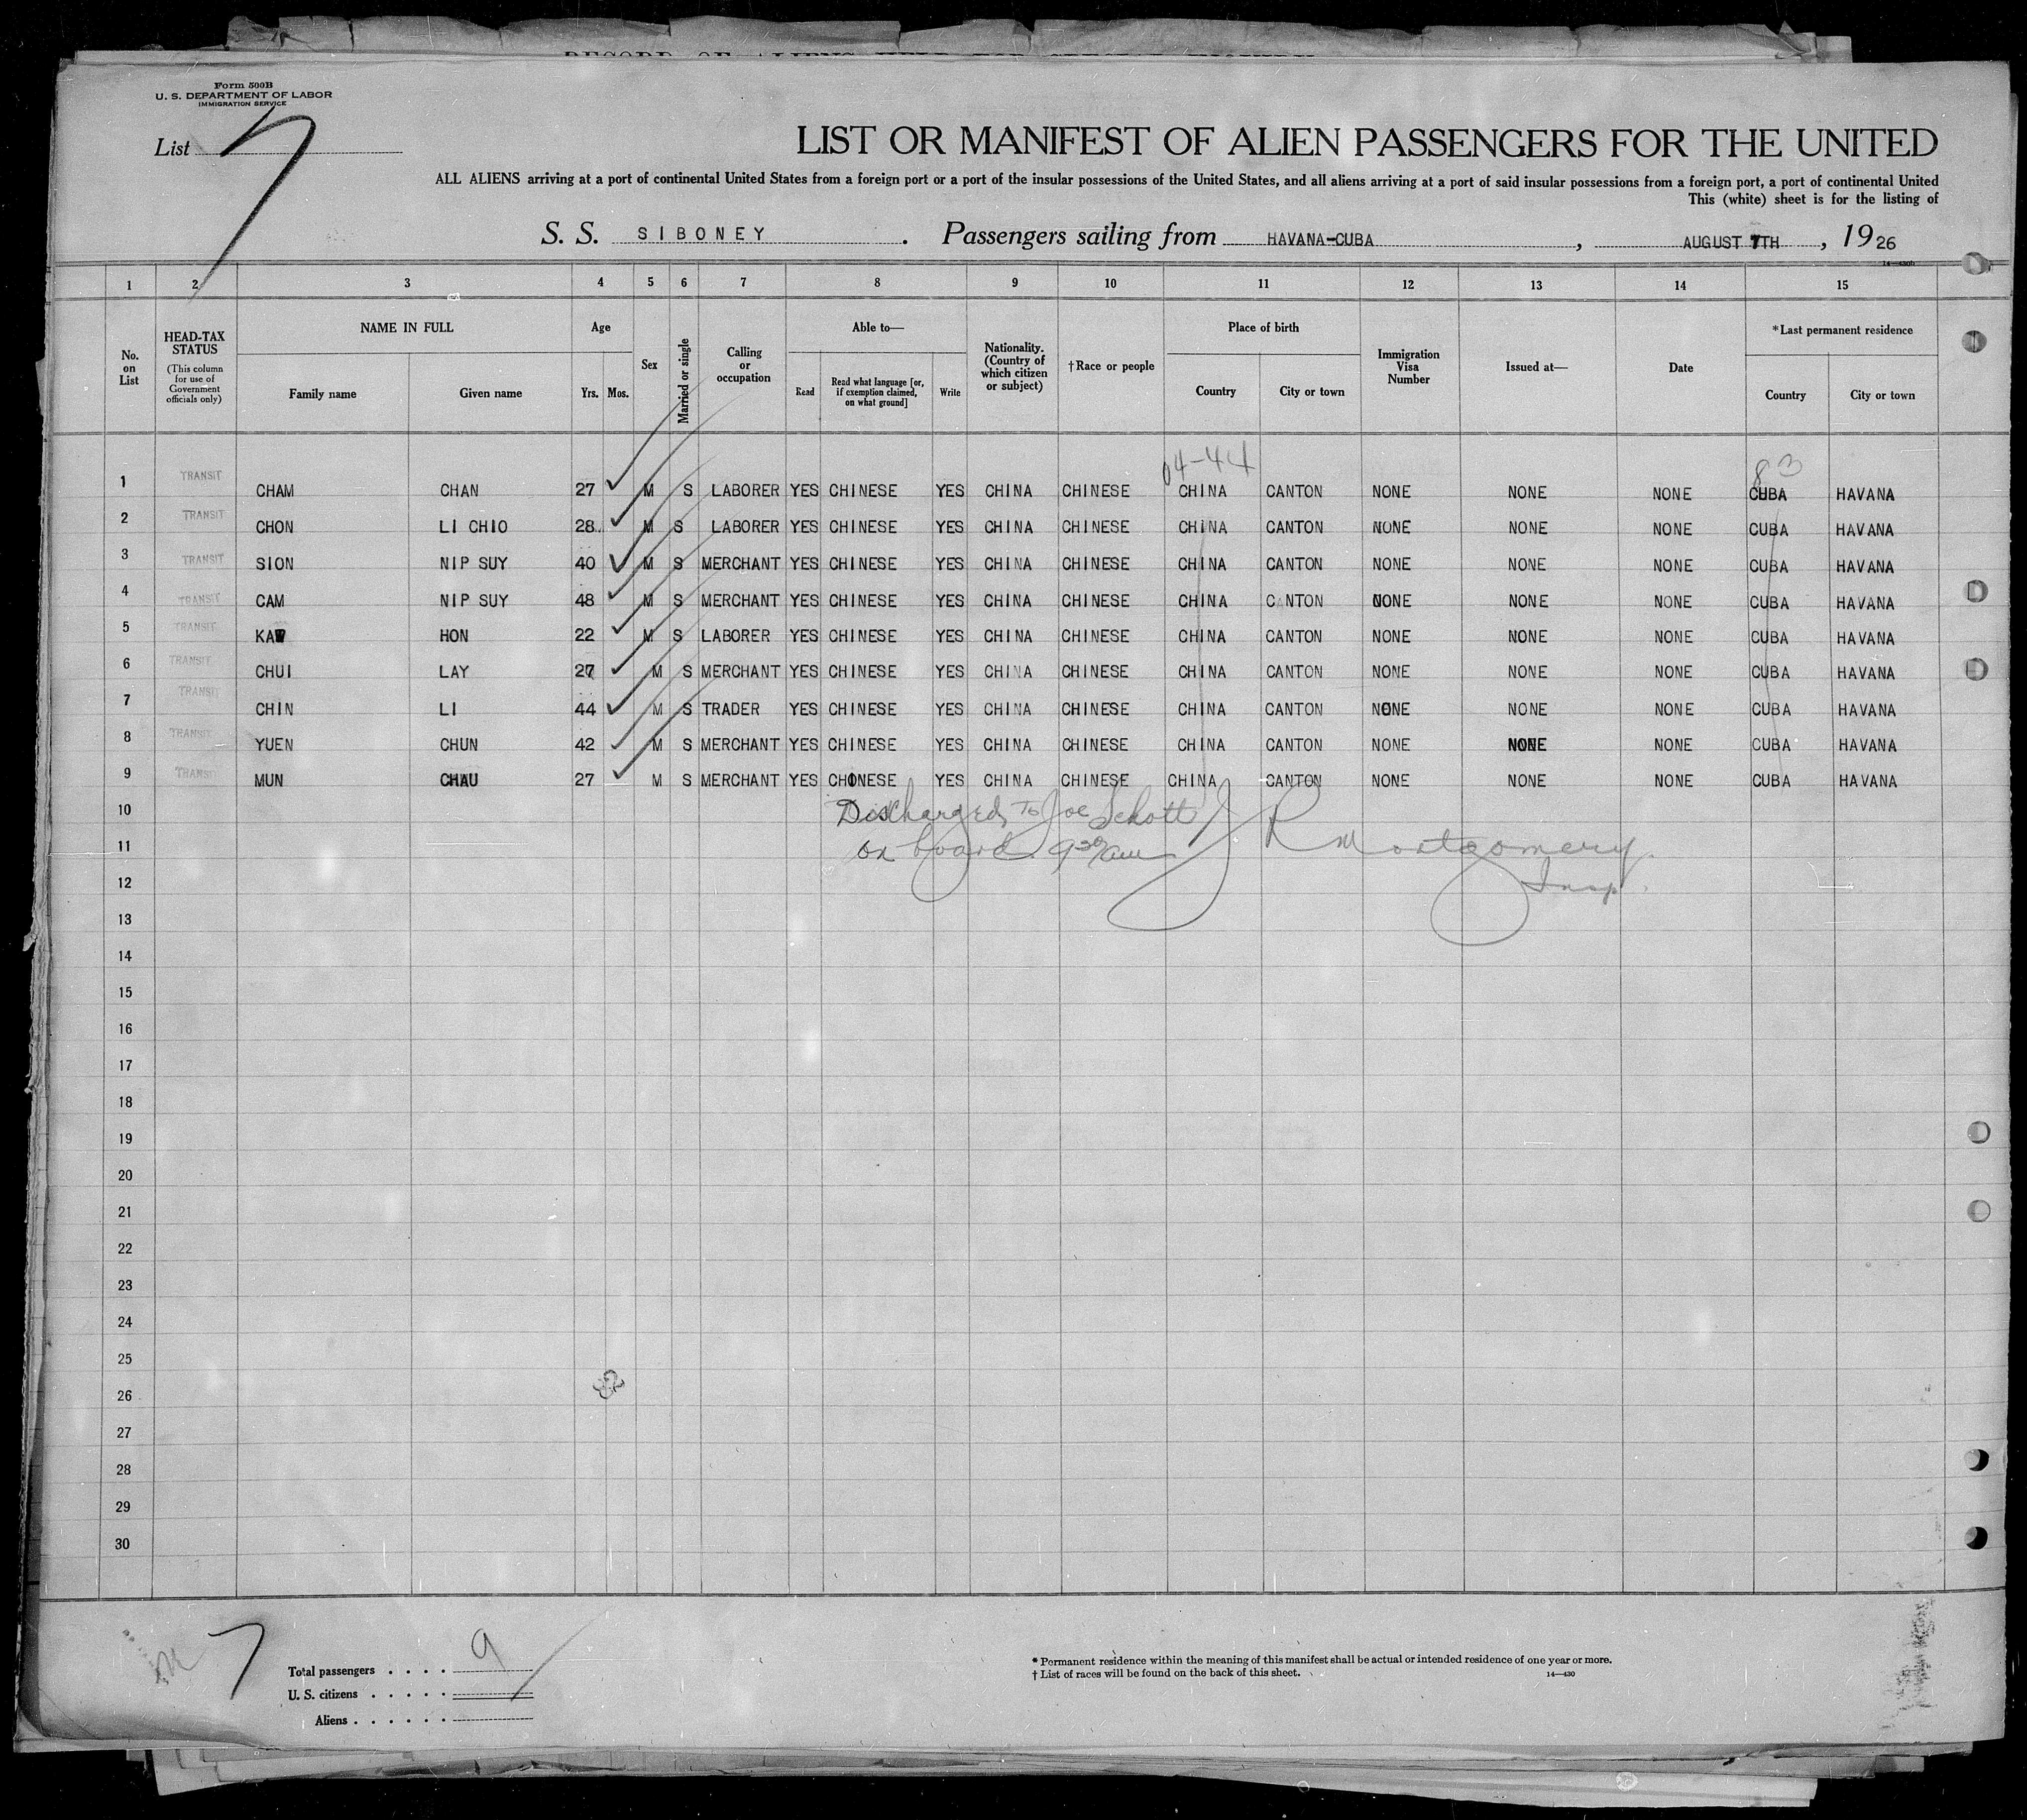 RECORD OF ALIENS HELD FOR SPECIAL INQUIRY
Form 500B
U. S. DEPARTMENT OF LABOR
IMMIGRATION SERVICE
List 7
LIST OR MANIFEST OF ALIEN PASSENGERS FOR THE UNITED
ALL ALIENS arriving at a port of continental United States from a foreign port or a port of the insular possessions of the United States, and all aliens arriving at a port of said insular possessions from a foreign port, a port of continental United
This (white) sheet is for the listing of
S. S. SIBONEY. Passengers sailing from HAVANA-CUBA, AUGUST 7TH, 1926
1 2 3 4 5 6 7 8 9 10 11 12 13 14 15
No. on List
HEAD-TAX STATUS (This column for use of Government officials only)
NAME IN FULL Family name Given name
Age Yrs. Mos.
Sex
Married or single
Calling or occupation
Able to— Read Read what language [or, if exemption claimed, on what ground] Write
Nationality. (Country of which citizen or subject)
†Race or people
Place of birth Country City or town
Immigration Visa Number
Issued at—
Date
*Last permanent residence Country City or town
04-44 83
1 TRANSIT CHAM CHAN 27 M S LABORER YES CHINESE YES CHINA CHINESE CHINA CANTON NONE NONE NONE CUBA HAVANA
2 TRANSIT CHON LI CHIO 28 M S LABORER YES CHINESE YES CHINA CHINESE CHINA CANTON NONE NONE NONE CUBA HAVANA
3 TRANSIT SION NIP SUY 40 M S MERCHANT YES CHINESE YES CHINA CHINESE CHINA CANTON NONE NONE NONE CUBA HAVANA
4 TRANSIT CAM NIP SUY 48 M S MERCHANT YES CHINESE YES CHINA CHINESE CHINA CANTON NONE NONE NONE CUBA HAVANA
5 TRANSIT HON 22 M S LABORER YES CHINESE YES CHINA CHINESE CHINA CANTON NONE NONE NONE CUBA HAVANA
6 TRANSIT CHUI LAY 27 M S MERCHANT YES CHINESE YES CHINA CHINESE CHINA CANTON NONE NONE NONE CUBA HAVANA
7 TRANSIT CHIN LI 44 M S TRADER YES CHINESE YES CHINA CHINESE CHINA CANTON NONE NONE NONE CUBA HAVANA
8 TRANSIT YUEN CHUN 42 M S MERCHANT YES CHINESE YES CHINA CHINESE CHINA CANTON NONE NONE NONE CUBA HAVANA
9 TRANSIT MUN CHAU 27 M S MERCHANT YES CHINESE YES CHINA CHINESE CHINA CANTON NONE NONE NONE CUBA HAVANA
10 Discharged to Joe Schott J R Montgomery
11 on board 9 30/am
12 Insp.
13
14
15
16
17
18
19
20
21
22
23
24
25
26
27
28
29
30
7
Total passengers . . . . 9
U. S. citizens . . . . .
Aliens . . . . . .
* Permanent residence within the meaning of this manifest shall be actual or intended residence of one year or more.
† List of races will be found on the back of this sheet. 14—430